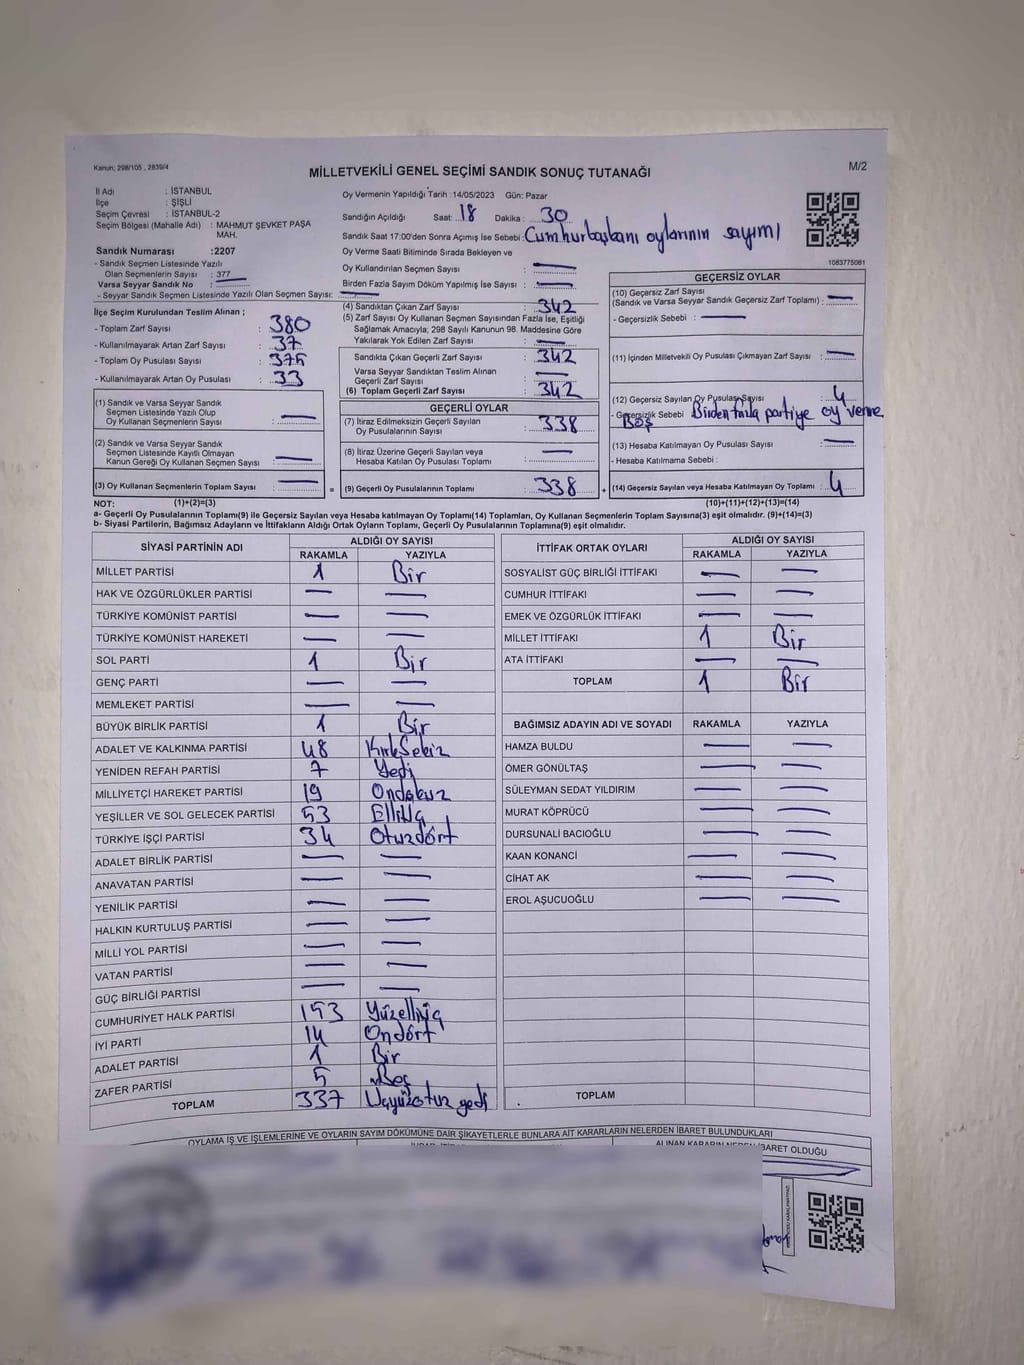 Kanun: 298/105 , 2839/4
MİLLETVEKİLİ GENEL SEÇİMİ SANDIK SONUÇ TUTANAĞI
M/2
İl Adı : İSTANBUL
İlçe : ŞİŞLİ
Seçim Çevresi : İSTANBUL-2
Seçim Bölgesi (Mahalle Adı) : MAHMUT ŞEVKET PAŞA MAH.
Sandık Numarası :2207
- Sandık Seçmen Listesinde Yazılı
Olan Seçmenlerin Sayısı : 377
Varsa Seyyar Sandık No :
- Seyyar Sandık Seçmen Listesinde Yazılı Olan Seçmen Sayısı:
Oy Vermenin Yapıldığı Tarih :14/05/2023 Gün: Pazar
Sandığın Açıldığı Saat: 18 Dakika : 30
Sandık Saat 17:00'den Sonra Açımış İse Sebebi : Cumhurbaşkanı oylarının sayımı
Oy Verme Saati Bitiminde Sırada Bekleyen ve
Oy Kullandırılan Seçmen Sayısı :
Birden Fazla Sayım Döküm Yapılmış İse Sayısı :
1083775081
İlçe Seçim Kurulundan Teslim Alınan ;
- Toplam Zarf Sayısı : 380
- Kullanılmayarak Artan Zarf Sayısı : 37
- Toplam Oy Pusulası Sayısı : 375
- Kullanılmayarak Artan Oy Pusulası : 33
(1) Sandık ve Varsa Seyyar Sandık
Seçmen Listesinde Yazılı Olup
Oy Kullanan Seçmenlerin Sayısı :
(2) Sandık ve Varsa Seyyar Sandık
Seçmen Listesinde Kayıtlı Olmayan
Kanun Gereği Oy Kullanan Seçmen Sayısı :
(3) Oy Kullanan Seçmenlerin Toplam Sayısı : =
(4) Sandıktan Çıkan Zarf Sayısı : 342
(5) Zarf Sayısı Oy Kullanan Seçmen Sayısından Fazla İse, Eşitliği
Sağlamak Amacıyla; 298 Sayılı Kanunun 98. Maddesine Göre
Yakılarak Yok Edilen Zarf Sayısı :
Sandıkta Çıkan Geçerli Zarf Sayısı : 342
Varsa Seyyar Sandıktan Teslim Alınan
Geçerli Zarf Sayısı :
(6) Toplam Geçerli Zarf Sayısı : 342
GEÇERLİ OYLAR
(7) İtiraz Edilmeksizin Geçerli Sayılan
Oy Pusulalarının Sayısı : 338
(8) İtiraz Üzerine Geçerli Sayılan veya
Hesaba Katılan Oy Pusulası Toplamı :
(9) Geçerli Oy Pusulalarının Toplamı : 338 +
GEÇERSİZ OYLAR
(10) Geçersiz Zarf Sayısı
(Sandık ve Varsa Seyyar Sandık Geçersiz Zarf Toplamı) :
- Geçersizlik Sebebi :
(11) İçinden Milletvekili Oy Pusulası Çıkmayan Zarf Sayısı :
(12) Geçersiz Sayılan Oy Pusulası Sayısı : 4
- Geçersizlik Sebebi : Birden fazla partiye oy verme
Boş
(13) Hesaba Katılmayan Oy Pusulası Sayısı :
- Hesaba Katılmama Sebebi :
(14) Geçersiz Sayılan veya Hesaba Katılmayan Oy Toplamı : 4
NOT: (1)+(2)=(3) (10)+(11)+(12)+(13)=(14)
a- Geçerli Oy Pusulalarının Toplamı(9) ile Geçersiz Sayılan veya Hesaba katılmayan Oy Toplamı(14) Toplamları, Oy Kullanan Seçmenlerin Toplam Sayısına(3) eşit olmalıdır. (9)+(14)=(3)
b- Siyasi Partilerin, Bağımsız Adayların ve İttifakların Aldığı Ortak Oyların Toplamı, Geçerli Oy Pusulalarının Toplamına(9) eşit olmalıdır.
SİYASİ PARTİNİN ADI ALDIĞI OY SAYISI
RAKAMLA YAZIYLA
MİLLET PARTİSİ 1 Bir
HAK VE ÖZGÜRLÜKLER PARTİSİ
TÜRKİYE KOMÜNİST PARTİSİ
TÜRKİYE KOMÜNİST HAREKETİ
SOL PARTİ 1 Bir
GENÇ PARTİ
MEMLEKET PARTİSİ
BÜYÜK BİRLİK PARTİSİ 1 Bir
ADALET VE KALKINMA PARTİSİ 48 KırkSekiz
YENİDEN REFAH PARTİSİ 7 Yedi
MİLLİYETÇİ HAREKET PARTİSİ 19 Ondokuz
YEŞİLLER VE SOL GELECEK PARTİSİ 53 Elliüç
TÜRKİYE İŞÇİ PARTİSİ 34 Otuzdört
ADALET BİRLİK PARTİSİ
ANAVATAN PARTİSİ
YENİLİK PARTİSİ
HALKIN KURTULUŞ PARTİSİ
MİLLİ YOL PARTİSİ
VATAN PARTİSİ
GÜÇ BİRLİĞİ PARTİSİ
CUMHURİYET HALK PARTİSİ 153 Yüzelliüç
İYİ PARTİ 14 Ondört
ADALET PARTİSİ 1 Bir
ZAFER PARTİSİ 5 Beş
TOPLAM 337 Üçyüzotuz yedi
İTTİFAK ORTAK OYLARI ALDIĞI OY SAYISI
RAKAMLA YAZIYLA
SOSYALİST GÜÇ BİRLİĞİ İTTİFAKI
CUMHUR İTTİFAKI
EMEK VE ÖZGÜRLÜK İTTİFAKI
MİLLET İTTİFAKI 1 Bir
ATA İTTİFAKI
TOPLAM 1 Bir
BAĞIMSIZ ADAYIN ADI VE SOYADI RAKAMLA YAZIYLA
HAMZA BULDU
ÖMER GÖNÜLTAŞ
SÜLEYMAN SEDAT YILDIRIM
MURAT KÖPRÜCÜ
DURSUNALİ BACIOĞLU
KAAN KONANCİ
CİHAT AK
EROL AŞUCUOĞLU
TOPLAM
OYLAMA İŞ VE İŞLEMLERİNE VE OYLARIN SAYIM DÖKÜMÜNE DAİR ŞİKAYETLERLE BUNLARA AİT KARARLARIN NELERDEN İBARET BULUNDUKLARI
ALINAN KARARIN NEDEN İBARET OLDUĞU